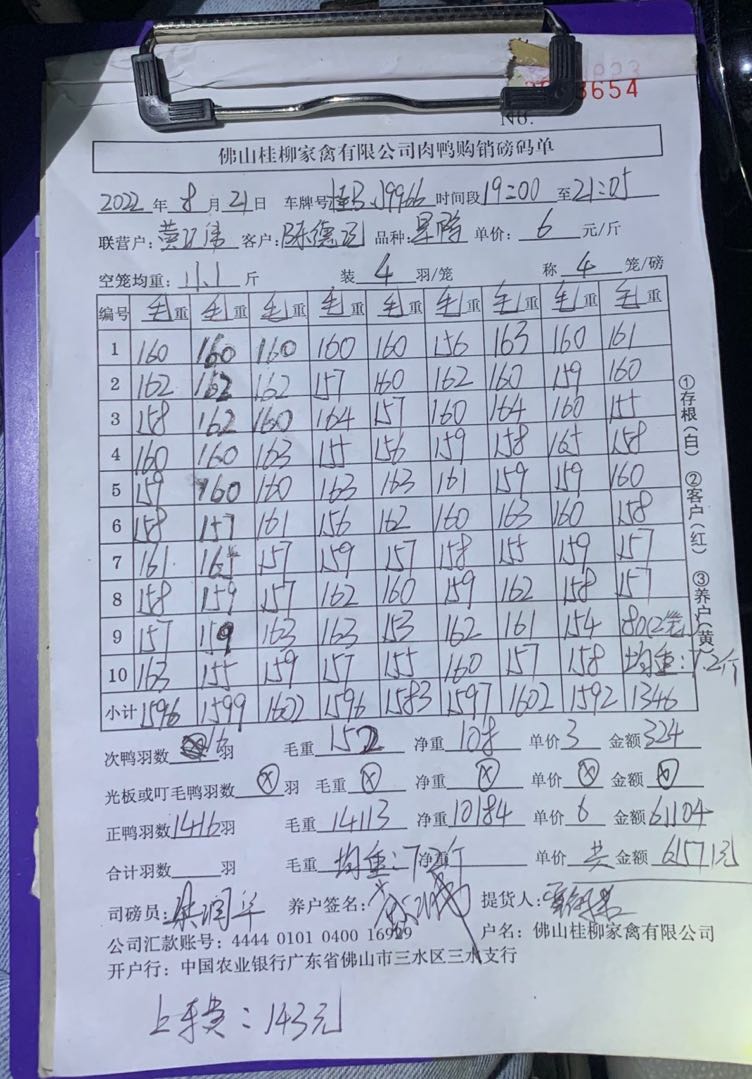 3654
No.
佛山桂柳家禽有限公司肉鸭购销磅码单
2022 年 8 月 21 日 车牌号 19966 时间段 19:00 至 21:05
联营户: 黄 客户: 陈德 品种: 单价: 6 元/斤
空笼均重: 11.1 斤 装 4 羽/笼 称 4 笼/磅
编号 毛重 毛重 毛重 毛重 毛重 毛重 毛重 毛重 毛重
1 160 160 160 160 160 156 163 160 161
2 162 162 162 157 160 162 160 159 160
3 158 162 160 164 157 160 164 160 155
4 160 160 163 155 156 159 158 165 158
5 159 160 160 163 163 161 159 159 160
6 158 157 161 156 162 160 163 160 158
7 161 165 157 159 157 158 155 159 157
8 158 159 157 162 160 159 162 158 157
9 157 159 163 163 153 162 161 154 80(2笼)
10 163 155 159 157 155 160 157 158 均重:7.2斤
小计 1596 1599 1602 1596 1583 1597 1602 1592 1346
①存根(白) ②客户(红) ③养户(黄)
次鸭羽数 16 羽 毛重 152 净重 108 单价 3 金额 324
光板或叮毛鸭羽数 ⊗ 羽 毛重 ⊗ 净重 ⊗ 单价 ⊗ 金额 ⊗
正鸭羽数 1416 羽 毛重 14113 净重 10184 单价 6 金额 61104
合计羽数 羽 毛重 均重:7.2斤 净重 单价 共 金额 61571元
司磅员: 润华 养户签名: 提货人:
公司汇款账号: 4444 0101 0400 16929 户名: 佛山桂柳家禽有限公司
开户行: 中国农业银行广东省佛山市三水区三水支行
上车费: 143元